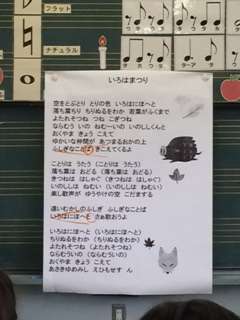 フラット
ナチュラル
ウ ア ウ ア
ウ ア ウ ア
いろはまつり
空をとぶとり とりの色 いろはにほへと
落ち葉ちり ちりぬるをわか 若葉がふくまで
よたれそつね つね こぎつね
ならむう いの ねむーいの いのししくんと
おくやま きょう こえて
ゆかいな仲間が あつまるおかの上
ふしぎなこが きこえてくるよ
ことりは うたう（ことりは うたう）
落ち葉は おどる（落ち葉は おどる）
きつねは はしゃぐ（きつねは はしゃぐ）
いのししは ねむい（いのししは ねむい）
楽し歌声が ゆうやけの空 こだまする
遠いむかしのふしぎ ふしぎなことば
いろはにほへそ さぁ歌おうよ
いろはにほへと（いろはにほへと）
ちりぬるをわか（ちりぬるをわか）
よたれそつね（よたれそつね）
ならむうゐの（ならむうゐの）
おくやま きょう こえて
あさきゆめみし ゑひもせす ん